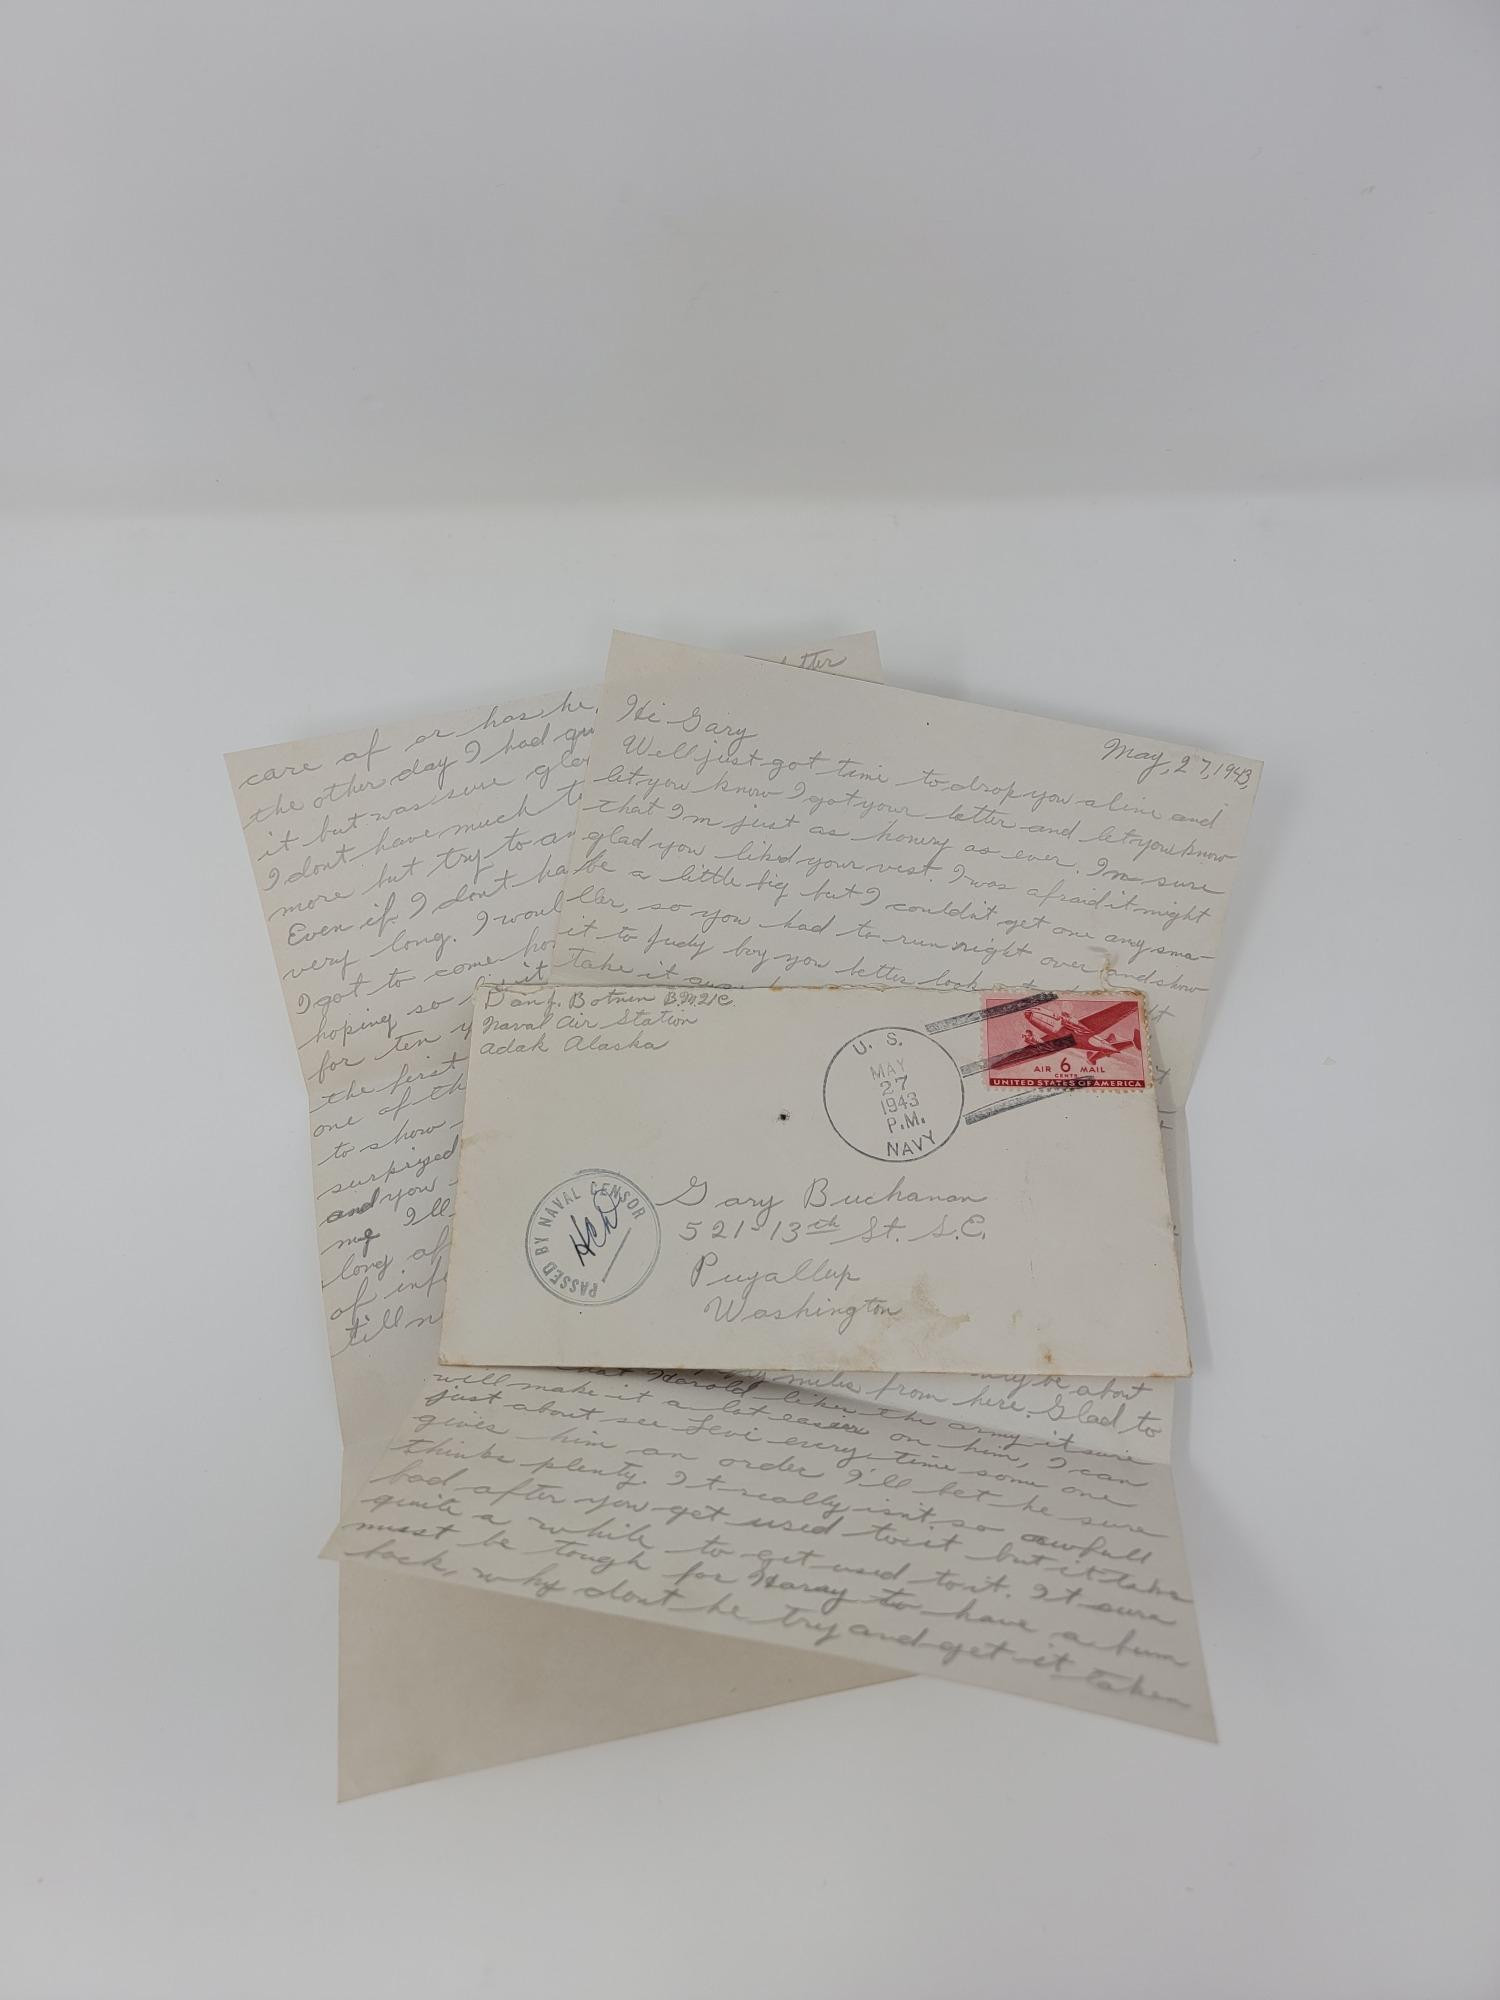 tter
care of or has he
the other day I had qu
it but was sure gla
I dont have much t
more but try to an
Even if I dont ha
very long. I woul
I got to come ho
hoping so
for ten y
the first
one of th
to show
surprized
and you
my I'll
long
of inf
till n
Hi Gary
May, 27, 1943,
Well just got time to drop you a line and
let you know I got your letter and let you know
that I'm just as honery as ever. I'm sure
glad you liked your vest. I was afraid it might
be a little big but I couldn't get one any sma-
ller, so you had to run right over and show
it to Judy boy you better look
take it
Dan J. Botnen B.M.2/C.
Naval Air Station
Adak Alaska
U. S.
MAY
27
1943
P.M.
NAVY
AIR 6 MAIL
CENTS
UNITED STATES OF AMERICA
PASSED BY NAVAL CENSOR
HCD
Gary Buchanan
521-13th St. S.E.
Puyallup
Washington
be about
miles from here. Glad to
that Harold likes the army it sure
will make it a lot easier on him, I can
just about see Levi every time some one
gives him an order I'll bet he sure
thinks plenty. It really isn't so awfull
bad after you get used to it but it takes
quite a while to get used to it. It sure
must be tough for Haray to have a bum
back, why dont he try and get it taken